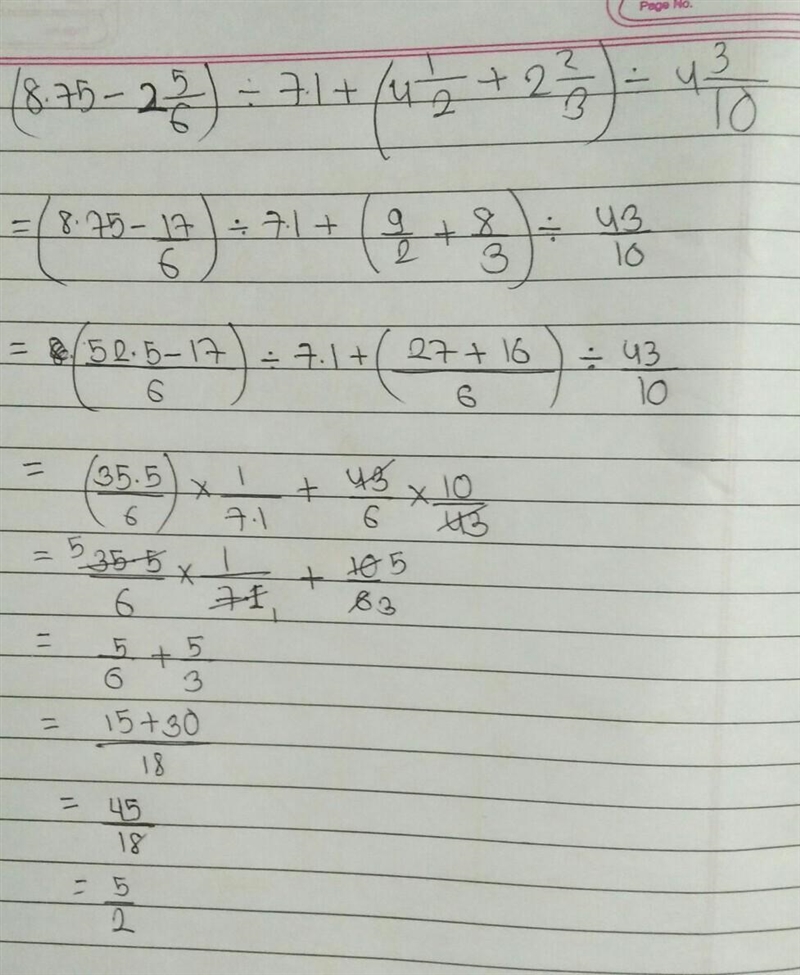 Page No.
(8.75 - 2 5/6) ÷ 7.1 + (4 1/2 + 2 2/3) ÷ 4 3/10
= (8.75 - 17/6) ÷ 7.1 + (9/2 + 8/3) ÷ 43/10
= (52.5 - 17/6) ÷ 7.1 + (27 + 16/6) ÷ 43/10
= (35.5/6) × 1/7.1 + 43/6 × 10/43
= 5 35.5/6 × 1/7.1 1 + 10 5/6 3
= 5/6 + 5/3
= 15 + 30/18
= 45/18
= 5/2